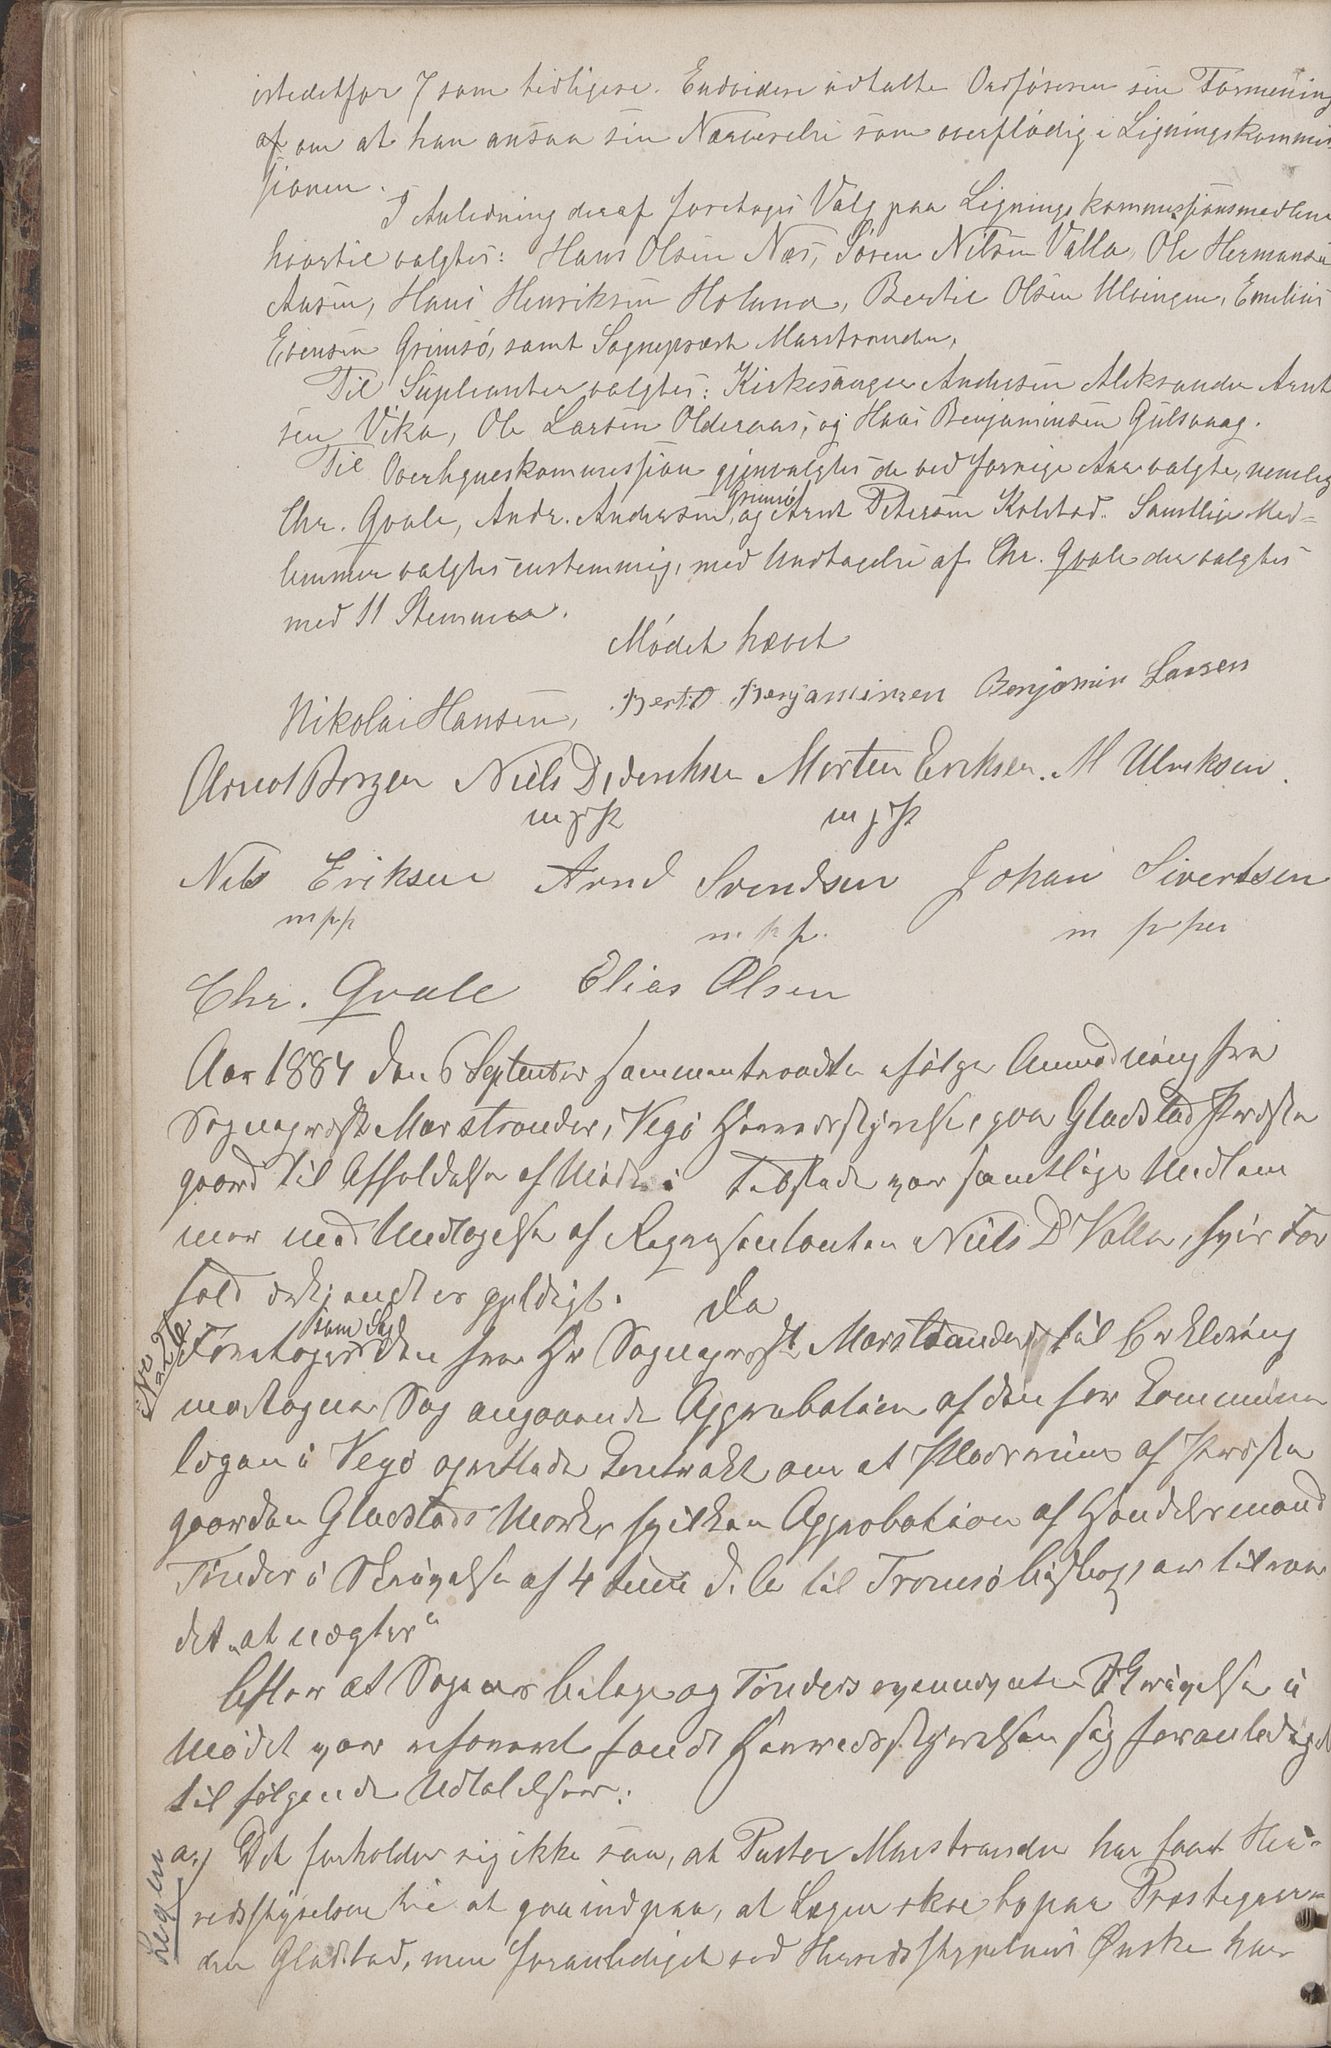 istedetfor 7 som tidligere. Endvidere udtalte Ordføreren sin Formening
af om at han ansaa sin Nærværelse som overflødig i Ligningskommis-
sjonen.
I Anledning deraf foretoges Valg paa Ligningskommissjonsmedlemer
hvortil valgtes: Hans Olsen Næs, Søren Nilsen Valla, Ole Hermansen
Aasen, Hans Henriksen Holand, Bertil Olsen Ulvingen, Emilius
Evensen Grimsø, samt Sogneprest Marstrander,
Til Supleanter valgtes: Kirkesanger Andersen Aleksander Arnt
sen Vika, Ole Larsen Olderaas, og Hans Benjaminsen Gulsvaag.
Til Overligneskommission gjenvalgtes de ved forrige Aar valgte, nemlig
Chr. Qvale, Andr. Andersen Grimsø, og Arnt Petersen Kolstad. Samtlige Med-
lemmer valgtes enstemmig, med Undtagelse af Chr. Qvale der valgtes
med 11 Stemmer.
Mødet hævet
Nikolai Hansen, Bertil Benjaminsen Benjamin Larsen
Arnot Borgen Niels Diderichsen Morten Eriksen. M Ulriksen.
m p p
Nils Eriksen Arnd Svendsen Johan Sivertsen
mpp m. p p. m p pen
Chr. Qvale Elias Olsen
Aar 1884 den 6 September sammentraadte ifølge Anmodning fra
Sogneprest Marstrander, Vegø Herredsstyrelse, paa Gladstad Præste
gaard til Afholdelse af Møde. Tilstede var samtlige Medlem
mer med Undtagelse af Repræsentanten Niels D Valla, hvis For
fald erkjendtes gyldigt. Da
Foretoges som Sag den fra Hr Sogneprest Marstrander til Erklæring
modtagne Sag angaaende Approbation af den for Kommune
lægen i Vegø oprettede Kontrakt om et Pladsrum af Præste
gaarden Gladstads Mark, hvilken Approbation af Handelsmand
Tønder i Skrivelse af 4 Juni d. A. til Tromsø Bisp, er tilraa
det "at nægtes"
Efter at Sagens bilage og Tønders ovennævnte Skrivelse i
Mødet var refereret fandt Herredsstyrelsen sig foranlediget
til følgende Udtalelser:
Lægen
a.) Det forholder sig ikke saa, at Pastor Marstrander har faaet Her-
redsstyrelsen til at gaa ind paa, at Lægen skal bo paa Præstegaar-
den Gladstad, men foranlediget ved Herredsstyrelsens Ønske har